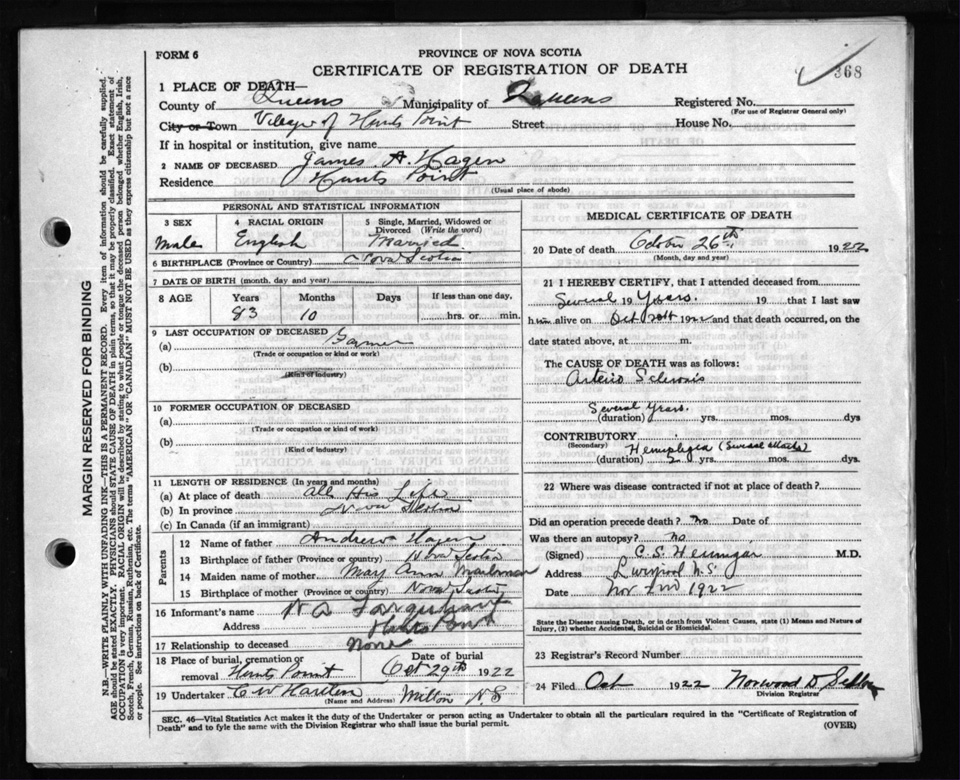 FORM 6
PROVINCE OF NOVA SCOTIA
CERTIFICATE OF REGISTRATION OF DEATH
368
1 PLACE OF DEATH—
County of Queens Municipality of Queens Registered No.
(For use of Registrar General only)
City or Town Village of Hunts Point Street House No.
If in hospital or institution, give name
2 NAME OF DECEASED James A Hagen
Residence Hunts Point
(Usual place of abode)
PERSONAL AND STATISTICAL INFORMATION
3 SEX 4 RACIAL ORIGIN 5 Single, Married, Widowed or Divorced (Write the word)
Male English Married
6 BIRTHPLACE (Province or Country) Nova Scotia
7 DATE OF BIRTH (month, day and year)
8 AGE Years Months Days If less than one day,
83 10 hrs. or min.
9 LAST OCCUPATION OF DECEASED
(a)
(Trade or occupation or kind or work)
(b)
(Kind of industry)
10 FORMER OCCUPATION OF DECEASED
(a)
(Trade or occupation or kind of work)
(b)
(Kind of industry)
11 LENGTH OF RESIDENCE (In years and months)
(a) At place of death All His Life
(b) In province Nova Scotia
(c) In Canada (if an immigrant)
Parents
12 Name of father Andrew Hagen
13 Birthplace of father (Province or country) Nova Scotia
14 Maiden name of mother Mary Ann
15 Birthplace of mother (Province or country) Nova Scotia
16 Informant's name Farquhart
Address Hunts Point
17 Relationship to deceased None
18 Place of burial, cremation or removal Hunts Point Date of burial Oct 29th 1922
19 Undertaker C W Milton N.S
(Name and Address)
MEDICAL CERTIFICATE OF DEATH
20 Date of death 26th 1922
(Month, day and year)
21 I HEREBY CERTIFY, that I attended deceased from
Several 19 Years. 19 that I last saw
him alive on Oct 1922 and that death occurred, on the
date stated above, at m.
The CAUSE OF DEATH was as follows:
Arterio Sclerosis
Several Years.
(duration) yrs. mos. dys
CONTRIBUTORY
(Secondary) Hemiplegia
(duration) yrs. mos. dys.
22 Where was disease contracted if not at place of death?
Did an operation precede death? No Date of
Was there an autopsy? No
(Signed) C. S. M.D.
Address Liverpool N.S.
Date Nov 2nd 1922
State the Disease causing Death, or in death from Violent Causes, state (1) Means and Nature of
Injury, (2) whether Accidental, Suicidal or Homicidal.
23 Registrar's Record Number
24 Filed Oct 1922 Norwood D
Division Registrar
SEC. 46—Vital Statistics Act makes it the duty of the Undertaker or person acting as Undertaker to obtain all the particulars required in the "Certificate of Registration of
Death" and to fyle the same with the Division Registrar who shall issue the burial permit. (OVER)
MARGIN RESERVED FOR BINDING
N.B.—WRITE PLAINLY WITH UNFADING INK—THIS IS A PERMANENT RECORD. Every item of information should be carefully supplied.
AGE should be stated EXACTLY. PHYSICIANS should STATE CAUSE OF DEATH in plain terms, so that it may be properly classified. Exact statement of
OCCUPATION is very important. RACIAL ORIGIN will be described by stating to what people or tongue the deceased person belonged whether English, Irish,
Scotch, French, German, Russian, Ruthenian, etc. The terms "AMERICAN" or "CANADIAN" MUST NOT BE USED as they express citizenship but not a race
or people. See instructions on back of Certificate.